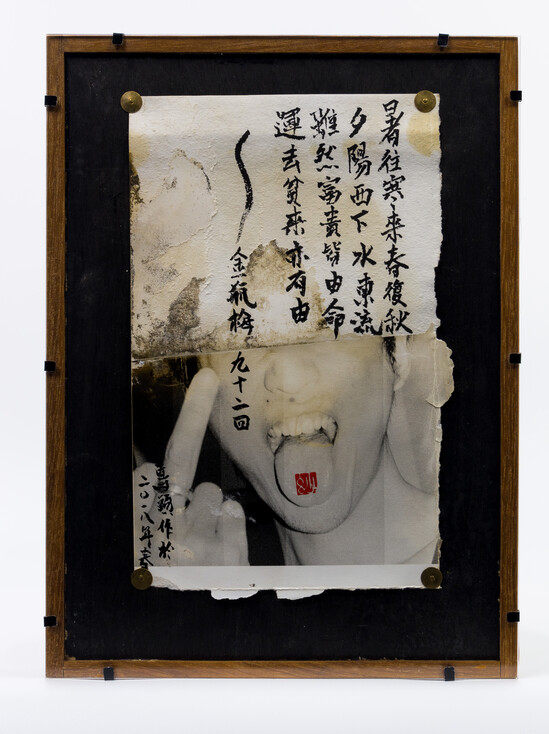 暑往寒来春復秋
夕陽西下水東流
雖然富貴皆由命
運去貧来亦有由
金瓶梅 九十二回
作於
二〇一八年春